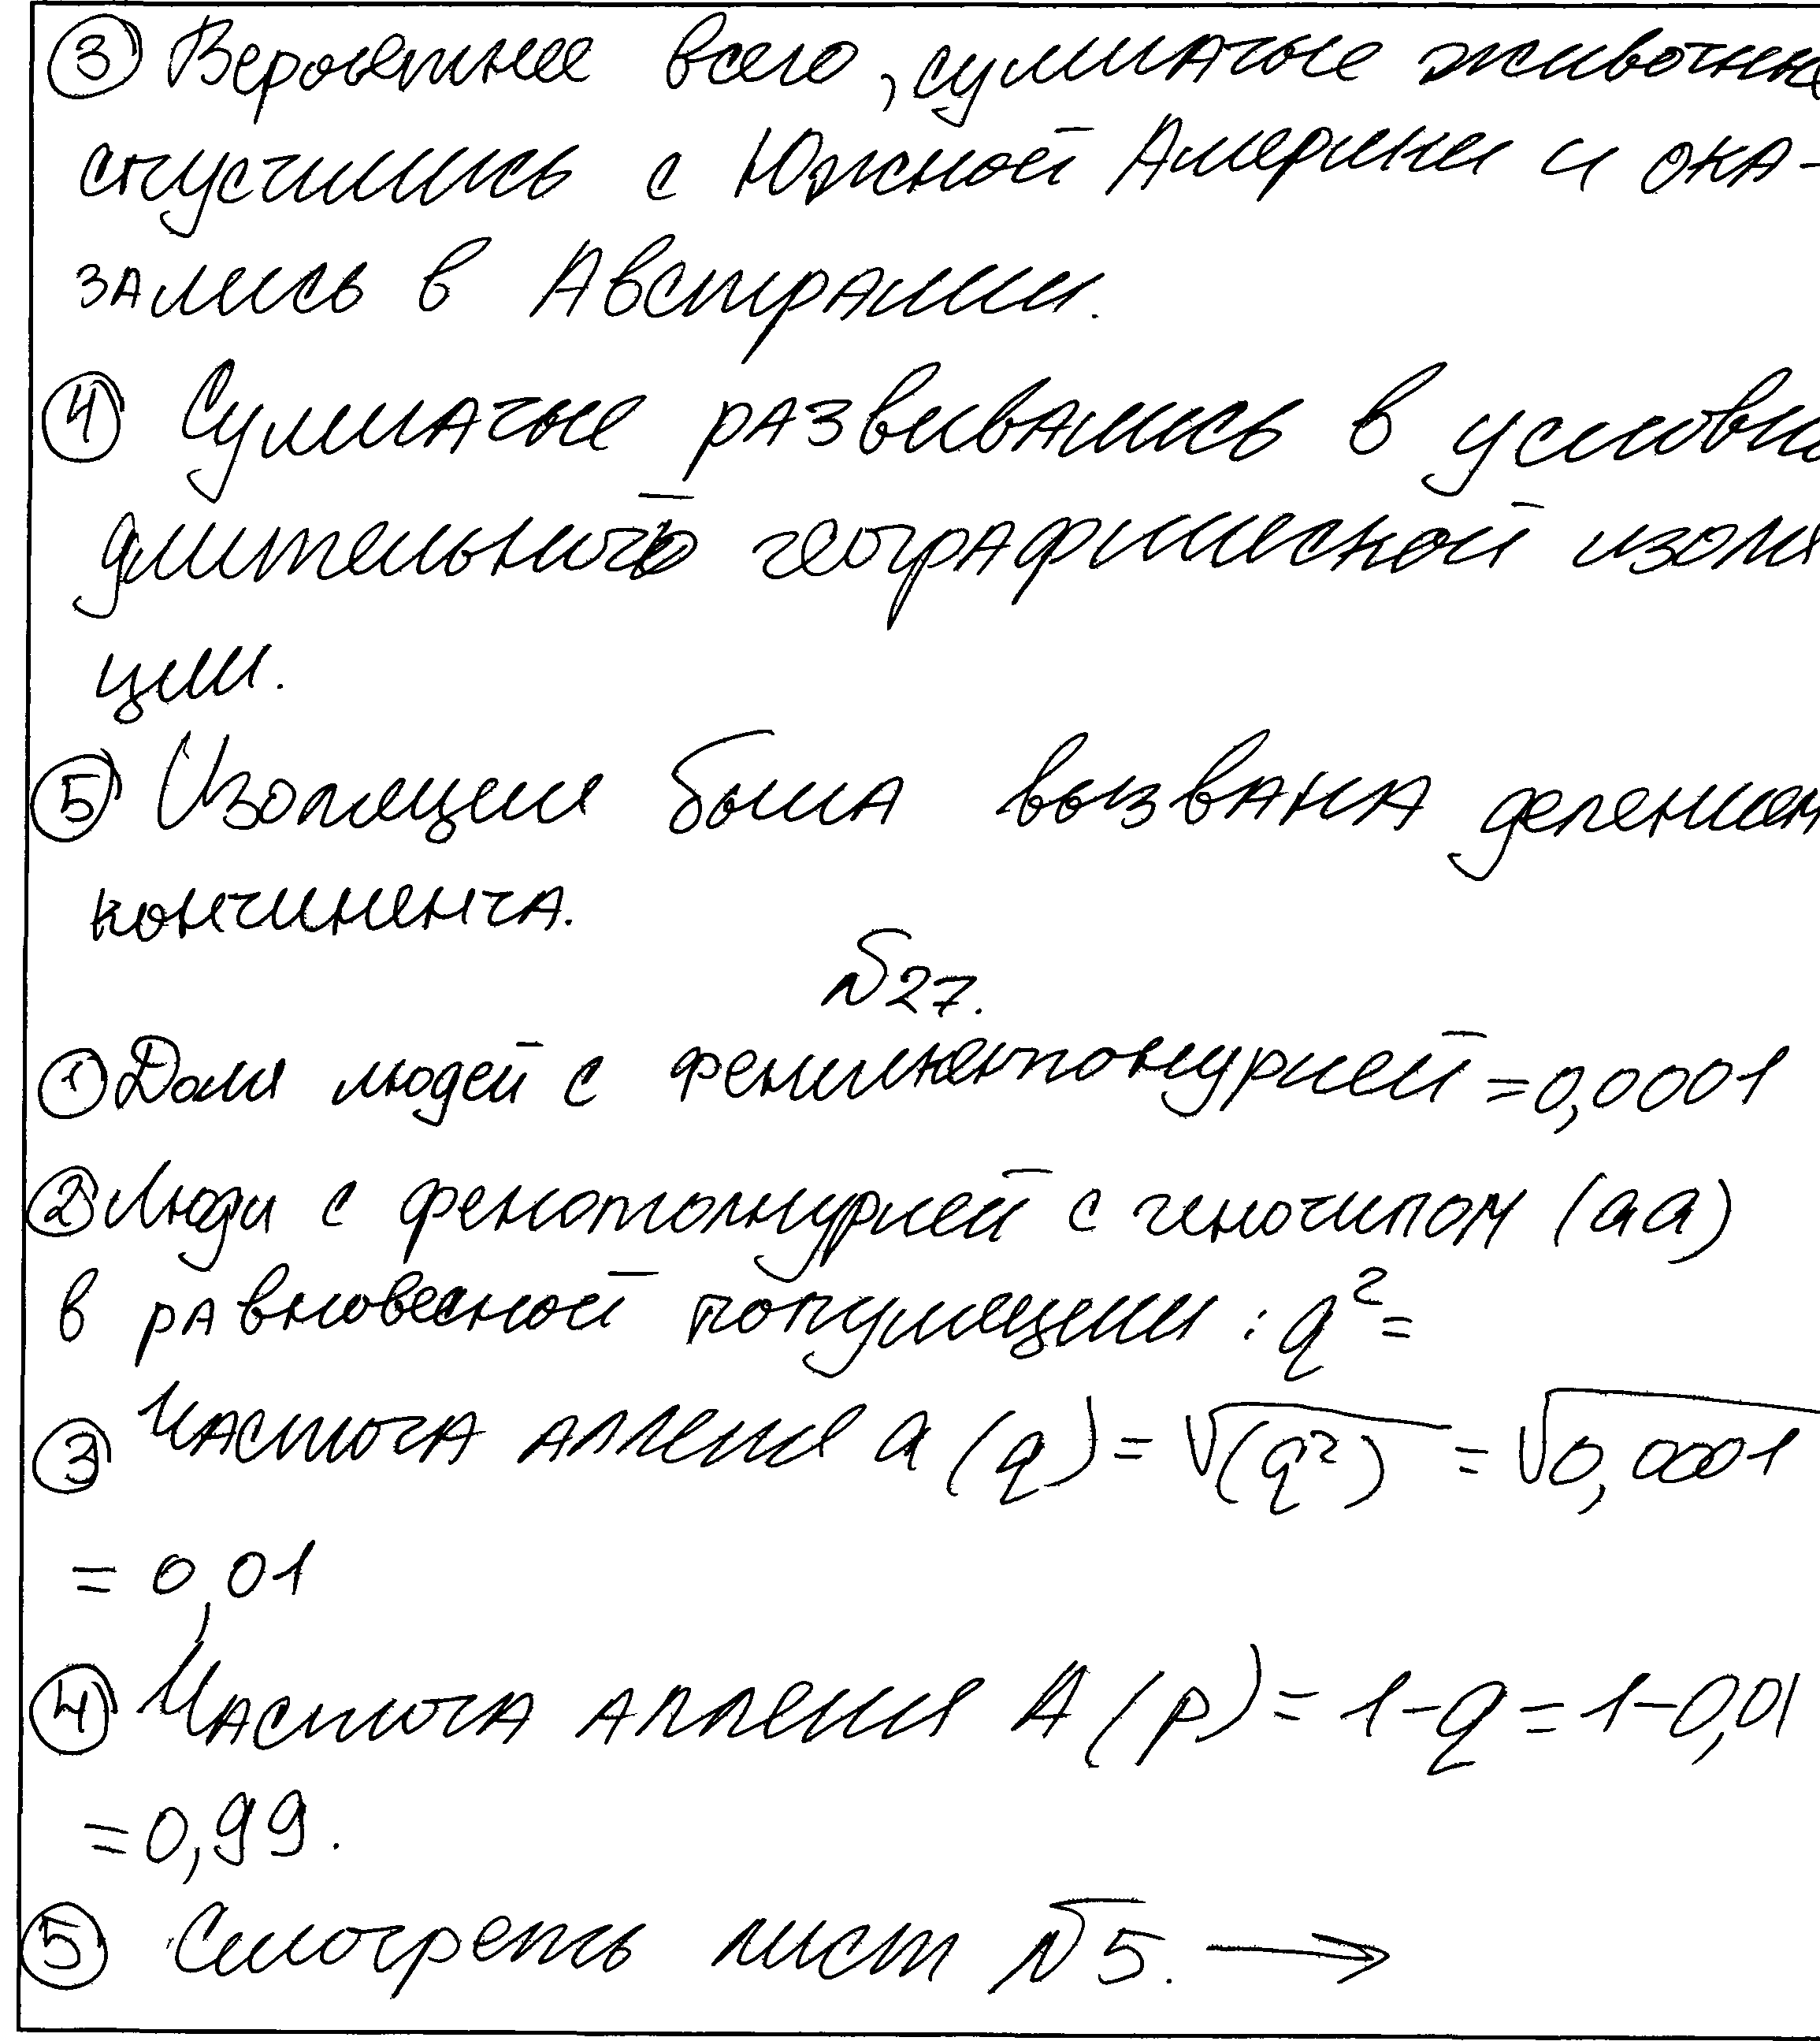 ③ Вероятнее всего, сумчатые животные
спустились с Южной Америки и ока-
зались в Австралии.
④ Сумчатые развивались в услови
длительной географической изоля
ции.
⑤ Изоляция была вызвана делением
континента.
№27.
① Доля людей с фенилкетонурией = 0,0001
② Люди с генотипом (аа)
в равновесной популяции: q² =
③ Частота аллеля а (q) = √(q²) = √0,0001
= 0,01
④ Частота аллеля А (р) = 1 - q = 1 - 0,01
= 0,99.
⑤ Смотреть лист №5. →